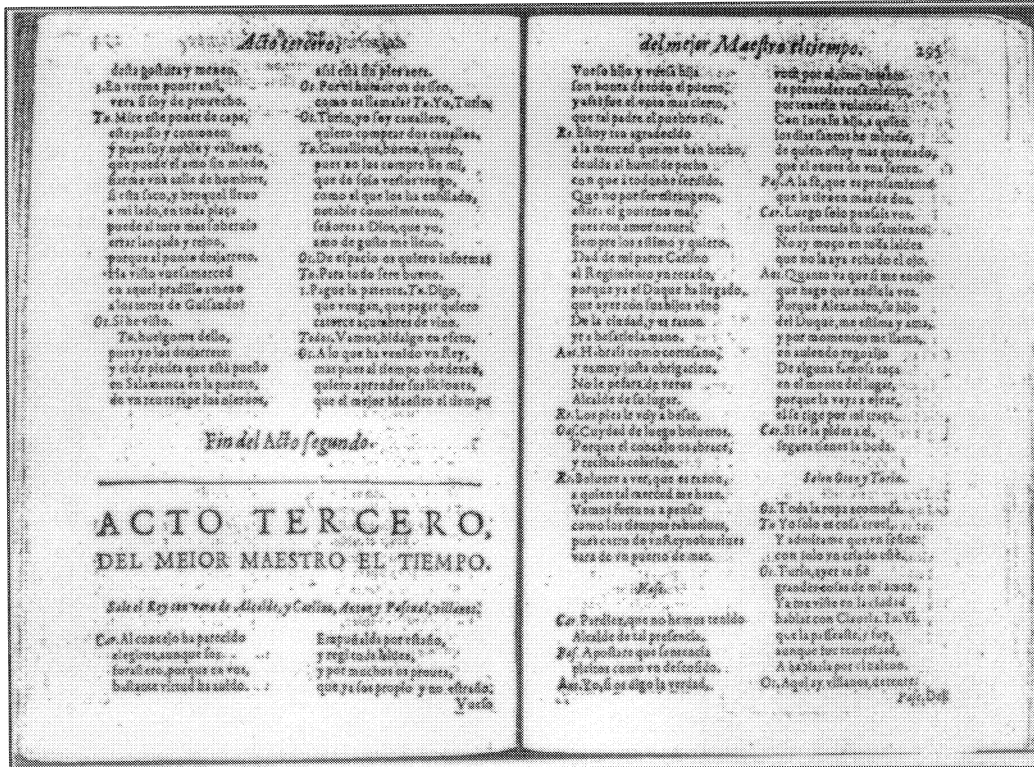 Acto tercero,
desta postura y meneo.
En verme poner ansi,
vera si soy de prouecho.
Tu. Mire este poner de capa,
este passo y contoneo:
y pues soy noble y valiente,
que puede el amo sin miedo,
fiarme vna calle de hombres,
si esta saco, y broquel lleuo
a mi lado, en toda plaça
puede al toro mas soberuio
echar lançada y rejon,
porque al punto desjarreto.
Ha visto vuesa merced
en aquel pradillo ameno
a los toros de Guisando?
Ot. Si he visto.
Tu. huelgome dello,
pues yo los desjarrete:
y el de piedra que està puesto
en Salamanca en la puente,
de vn reues rape los nieruos,
assi està sin pies
Ot. Por el humor os desseo,
como os llamais? Tu. Yo, Turin,
Ot. Turin, yo soy cauallero,
quiero comprar dos cauallos,
Tu. Cauallicos, bueno, quedo,
pues no los compre sin mi,
que de solo verlos tengo,
como el que los ha ensillado,
notable conocimiento,
señores a Dios, que yo,
amo de gusto me lleuo.
Ot. De espacio os quiero informar
Tu. Para todo sere bueno.
1. Pague la patente, Tu. Digo,
que vengan, que pagar quiero
catorce açumbres de vino.
Todos. Vamos, hidalgo en efeto,
Ot. A lo que ha venido vn Rey,
mas pues al tiempo obedezco,
quiero aprender sus liciones,
que el mejor Maestro el tiempo
Fin del Acto segundo.
ACTO TERCERO,
DEL MEIOR MAESTRO EL TIEMPO.
Sale el Rey con vara de Alcalde, y Carlino, Anton y Pascual, villanos.
Car. Al concejo ha parecido
elegiros, aunque sos
forastero, porque en vos,
bastante virtud ha auido.
Empuñalda por estraño,
y regi toda la aldea,
y por muchos os prouea,
que ya sos propio y no estraño,
Vueso
del mejor Maestro el tiempo. 295
Vueso hijo y vuesa hija
son honra de todo el puerto,
y assi fue el voto mas cierto,
que tal padre el pueblo rija.
Re. Estoy tan agradecido
a la merced que me han hecho,
deuda al humilde pecho
con que a todos he seruido.
Que no por ser estrangero,
estarà el gouierno mal,
pues con amor natural
siempre los estimo y quiero.
Dad de mi parte Carlino
al Regimiento vn recado,
porque ya el Duque ha llegado,
que ayer con sus hijos vino
De la ciudad, y es razon
yr a besarle la mano.
Ant. Hablais como cortesano,
y es muy justa obligacion,
No le pesarà de veros
Alcalde de su lugar.
Re. Los pies le voy a besar.
Cuydad de luego bolueros,
Porque el concejo os abrace,
y recibais colacion.
Re. Boluere a ver, que es razon,
a quien tal merced me haze.
Vamos fortuna a pensar
como los tiempos rebuelues,
pues cetro de vn Reyno buelues
vara de vn puerto de mar.
Vase.
Car. Pardiez, que no hemos tenido
Alcalde de tal presencia.
Pas. Apostare que sentencia
pleitos como vn descosido.
Ant. Yo, si os digo la verdad,
voté por el, con intento
de pretender casamiento,
por tenerle voluntad.
Con su hija, a quien
los dias santos he mirado,
de quien estoy mas quemado,
Pas. A la fè, que es pensamiento
que le tienen mas de dos.
Car. Luego solo pensais vos,
que intentais su casamiento;
No ay moço en toda la aldea
que no la aya echado el ojo.
Ant. Quanto va que si me enojo
que hago que nadie la vea.
Porque Alexandro, su hijo
del Duque, me estima y ama,
y por momentos me llama,
en auiendo regozijo
De alguna famosa caça
en el monte del lugar,
porque la vaya a ojear,
el se rige por mi traça.
Car. Si se la pides a el,
segura tienes la boda.
Salen Oton y Turin.
Ot. Toda la ropa acomoda.
Tu. Yo solo es cosa cruel,
Y admirame que vn señor
con solo vn criado estè.
Ot. Turin, ayer te fiè
grandes cosas de mi amor,
Ya me viste en la ciudad
hablar con Tu. Vi,
que la passeaste, y fuy,
aunque fue temeridad,
A hablarla por el balcon.
Ot. Aqui ay villanos, detente.
Pas. Des